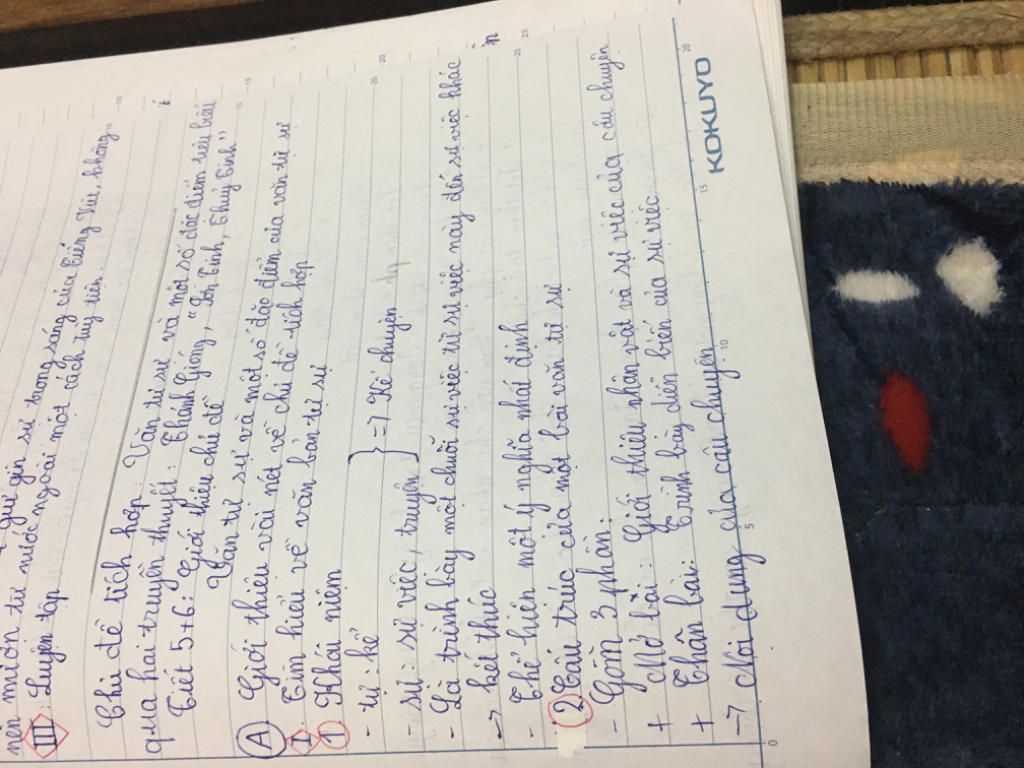 nên mượn từ nước ngoài một cách tuỳ tiện.
giữ gìn sự trong sáng của Tiếng Việt, không
III: Luyện tập
Chủ đề tích hợp: Văn tự sự và một số đặc điểm tiêu biểu
qua hai truyền thuyết: Thánh Gióng, "Sơn Tinh, Thuỷ Tinh"
Tiết 5+6: Giới thiệu chủ đề
Văn tự sự và một số đặc điểm của văn tự sự
A Giới thiệu vài nét về chủ đề tích hợp
I. Tìm hiểu về văn bản tự sự
1 Khái niệm
- tự: kể
- sự: sự việc, truyện } => Kể chuyện
- Là trình bày một chuỗi sự việc từ sự việc này đến sự việc khác
-> kết thúc
- Thể hiện một ý nghĩa nhất định
2 Cấu trúc của một bài văn tự sự
- Gồm 3 phần:
+ Mở bài: Giới thiệu nhân vật và sự việc của câu chuyện
+ Thân bài: Trình bày diễn biến của sự việc
-> Nội dung của câu chuyện
KOKUYO